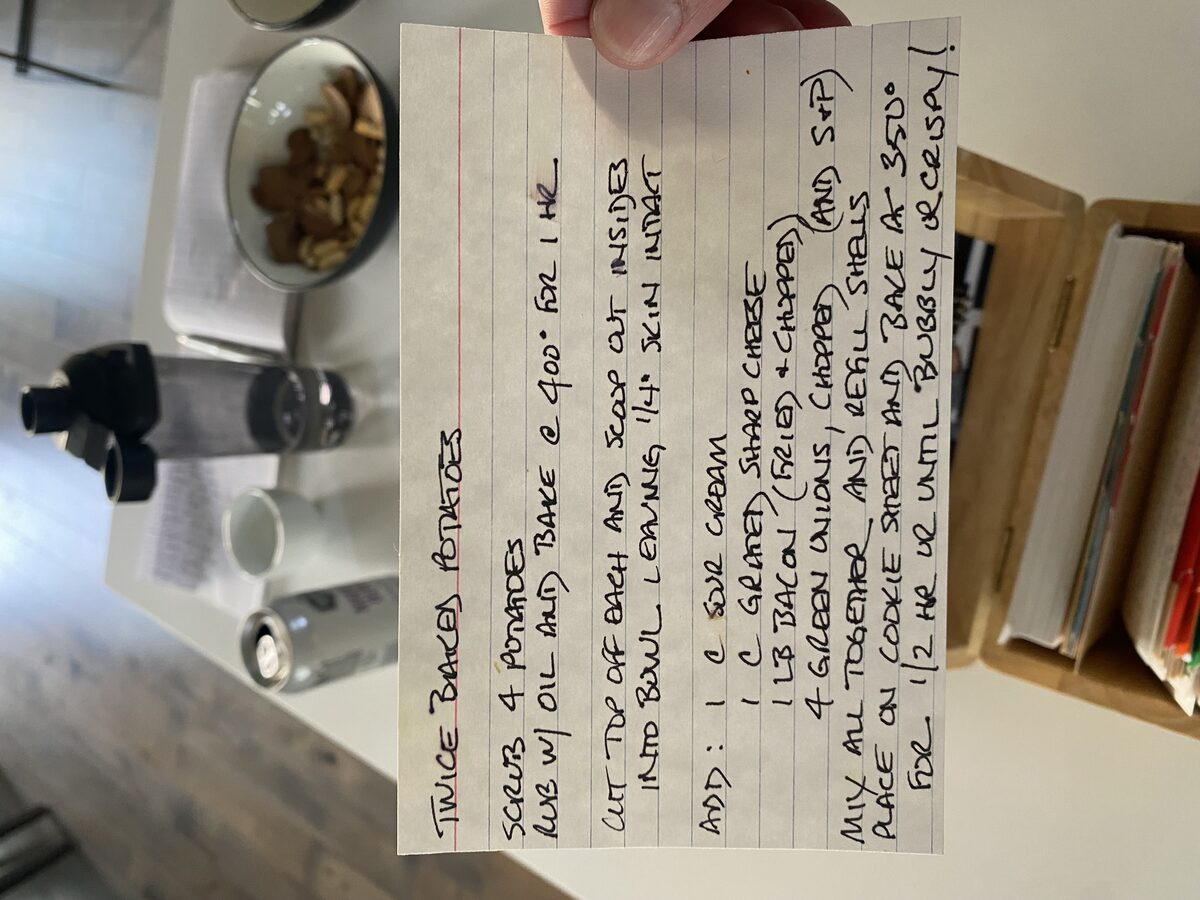 TWICE BAKED POTATOES
SCRUB 4 POTATOES
RUB W/ OIL AND BAKE @ 400° FOR 1 HR
CUT TOP OFF EACH AND SCOOP OUT INSIDES
INTO BOWL LEAVING 1/4" SKIN INTACT
ADD: 1 C SOUR CREAM
1 C GRATED SHARP CHEESE
1 LB BACON (FRIED + CHOPPED)
4 GREEN ONIONS, CHOPPED (AND S+P)
MIX ALL TOGETHER AND REFILL SHELLS
PLACE ON COOKIE SHEET AND BAKE AT 350°
FOR 1/2 HR OR UNTIL BUBBLY OR CRISPY!